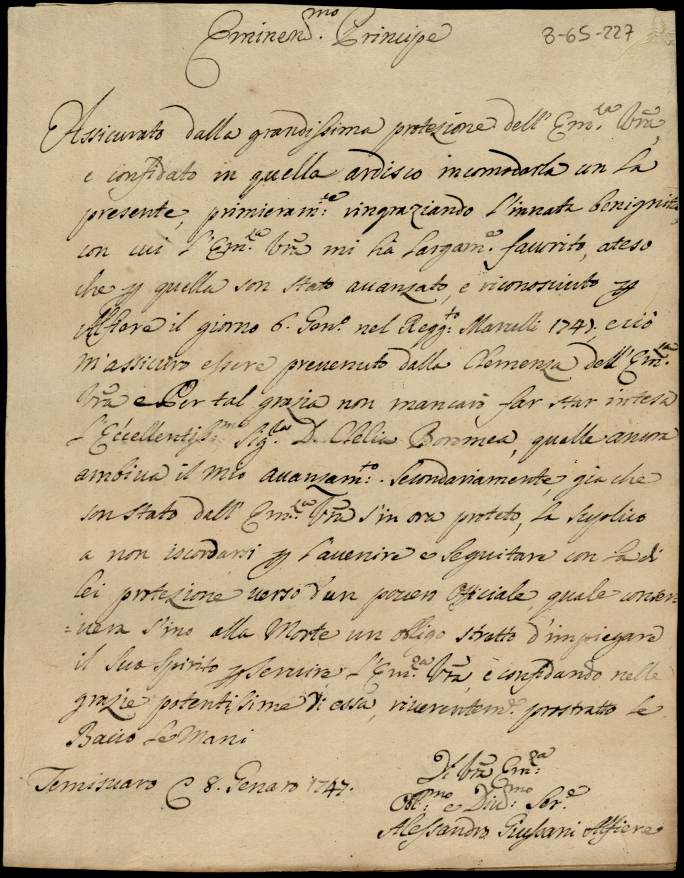 Eminen.mo Principe
8-65-227
Assicurato dalla grandissima protezione dell' Em.za Vra,
e confidato in quella ardisco incomodarla con la
presente, primieram.te ringraziando l'innata benignità
con cui l'Em.za Vra mi hà largam.e favrito, ateso
che p quella son stato avanzato, e riconosciuto p
Alfiere il giorno 6. Gen.o nel Regg.to Marulli 1747, e ciò
m'assicuro essere prevenuto dalla Clemenza dell' Em.za
Vra e Per tal grazia non mancarò far star intesa
l'Eccellentiss.mo Sig.la D. Clelia Borromea, quelle ancora
ambiva il mio avanzam.to. Secondariamente, gia che
son stato dall' Em.za Vra s'in ora proteto, la suplico
a non iscordarsi p l'avenire e seguitare con la di
lei protezione verso d'un povero Officiale, quale conser=
=verà s'ino alla Morte un obligo stratto d'impiegare
il suo spirito p servire l'Em.za Vra, e confidando nelle
grazie potentissime di essa, riverentem.e prostratto le
Bacio le Mani
Di Vra Em.za
Temisvaro 8. Genaro 1747.
Obl.mo e Div.mo Ser.e
Alessandro Giussani Alfiere